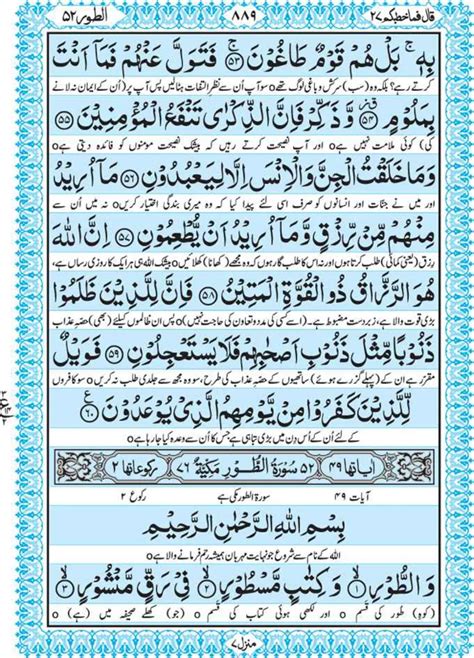 قال فما خطبکم ۲۷ ۸۸۹ الطور ۵۲
بِهٖ ۚ بَلْ هُمْ قَوْمٌ طَاغُوْنَ ۚ﴿۵۳﴾ فَتَوَلَّ عَنْهُمْ فَمَاۤ اَنْتَ
کرتے رہے؟ بلکہ وہ (سب) سرکش و باغی لوگ تھے o سو آپ اُن سے نظرِ التفات ہٹالیں پس آپ پر (اُن کے ایمان نہ لانے
بِمَلُوْمٍ ﴿۵۴﴾ وَّ ذَكِّرْ فَاِنَّ الذِّكْرٰى تَنْفَعُ الْمُؤْمِنِيْنَ ﴿۵۵﴾
کی) کوئی ملامت نہیں ہے o اور آپ نصیحت کرتے رہیں کہ بیشک نصیحت مومنوں کو فائدہ دیتی ہے o
وَمَا خَلَقْتُ الْجِنَّ وَالْاِنْسَ اِلَّا لِيَعْبُدُوْنِ ﴿۵۶﴾ مَاۤ اُرِيْدُ
اور میں نے جنات اور انسانوں کو صرف اسی لئے پیدا کیا کہ وہ میری بندگی اختیار کریں o نہ میں اُن سے
مِنْهُمْ مِّنْ رِّزْقٍ وَّمَاۤ اُرِيْدُ اَنْ يُّطْعِمُوْنِ ﴿۵۷﴾ اِنَّ اللّٰهَ
رزق (یعنی کمائی) طلب کرتا ہوں اور نہ اس کا طلب گار ہوں کہ وہ مجھے (کھانا) کھلائیں o بیشک اللہ ہی ہر ایک کا روزی رساں ہے،
هُوَ الرَّزَّاقُ ذُو الْقُوَّةِ الْمَتِيْنُ ﴿۵۸﴾ فَاِنَّ لِلَّذِيْنَ ظَلَمُوْا
بڑی قوت والا ہے، زبردست مضبوط ہے۔ (اسے کسی کی مدد و تعاون کی حاجت نہیں) o پس ان ظالموں کیلئے (بھی) حصۂ عذاب
ذَنُوْبًا مِّثْلَ ذَنُوْبِ اَصْحٰبِهِمْ فَلَا يَسْتَعْجِلُوْنِ ﴿۵۹﴾ فَوَيْلٌ
مقرر ہے ان کے (پہلے گزرے ہوئے) ساتھیوں کے حصۂ عذاب کی طرح، سو وہ مجھ سے جلدی طلب نہ کریں o سو کافروں
لِّلَّذِيْنَ كَفَرُوْا مِنْ يَّوْمِهِمُ الَّذِيْ يُوْعَدُوْنَ ﴿۶۰﴾
کے لئے اُن کے اُس دن میں بڑی تباہی ہے جس کا اُن سے وعدہ کیا جا رہا ہے o
اٰیاتها ۴۹ ۵۲ سُوْرَةُ الطُّوْرِ مَكِّيَّةٌ ۷۶ رکوعاتها ۲
آیات ۴۹ سورۃ الطور مکی ہے رکوع ۲
بِسْمِ اللّٰهِ الرَّحْمٰنِ الرَّحِيْمِ
اللہ کے نام سے شروع جو نہایت مہربان ہمیشہ رحم فرمانے والا ہے o
وَ الطُّوْرِ ﴿۱﴾ وَ كِتٰبٍ مَّسْطُوْرٍ ﴿۲﴾ فِيْ رَقٍّ مَّنْشُوْرٍ ﴿۳﴾
(کوہِ) طور کی قسم o اور لکھی ہوئی کتاب کی قسم o (جو) کھلے صحیفہ میں (ہے) o
منزل ۷